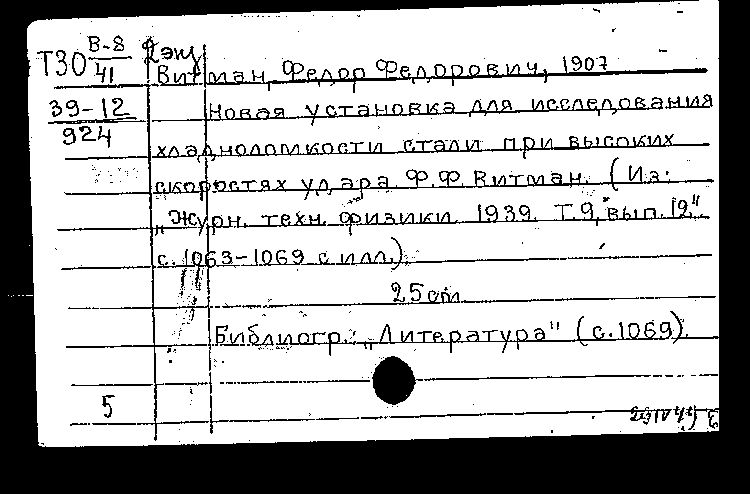 Т30 В-8
41
39-12
924
Витман, Федор Федорович, 1907
Новая установка для исследования
хладноломкости стали при высоких
скоростях удара. Ф.Ф.Витман. (Из:
„Журн. техн. физики. 1939. Т.9, вып. 12"
с. 1063-1069 с илл.)
25 cm.
Библиогр.: „Литература" (с.1069).
5